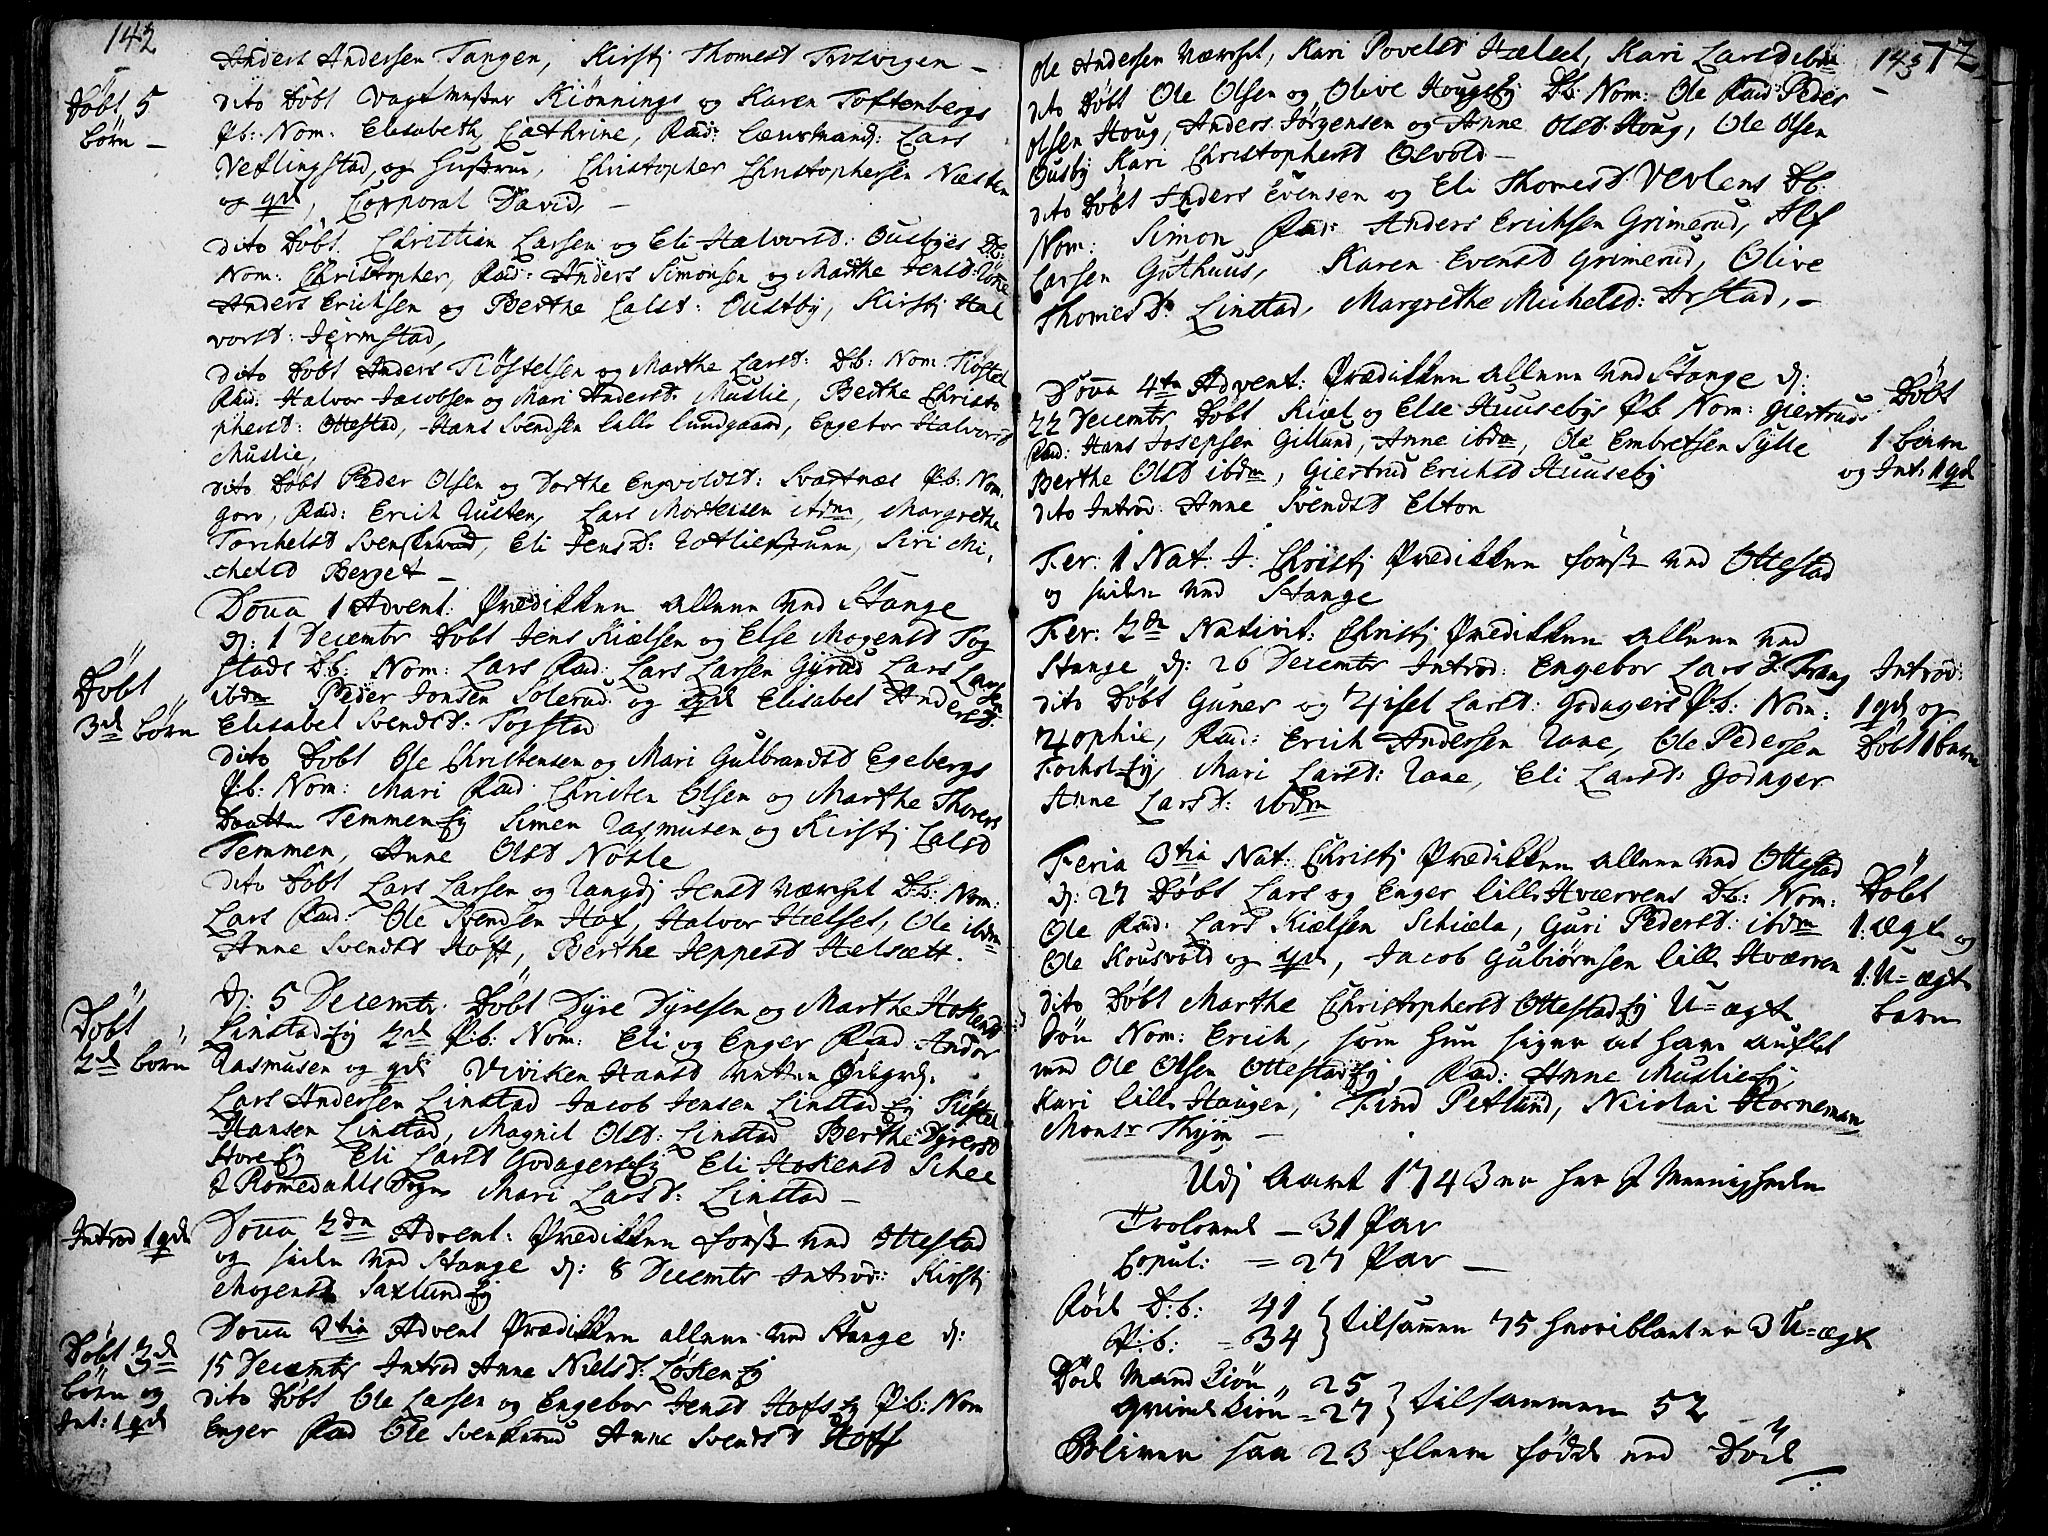 142
Anders Andersen Tangen, Kirstj Thomesd Torsvigen –
Døbt 5
børn –
dito Døbt Vagtmester Kiønnings og Karen Toftenbergs
P.b: Nom: Elisabeth Cathrine, Fad: Lænsmand: Lars
Vestlingstad, og Hustrue, Christopher Christophersen Næsten
og qd, Corporal David, –
dito Døbt Christian Larsen og Eli Halvorsd: Ousbyes D.b:
Nom: Christopher, Fad: Anders Simonsen og Marthe Jensd:
Anders Erichsen og Berthe Calsd: Oustby, Kirstj Hal
vorsd: Jermstad,
dito Døbt Anders Tiøstelsen og Marthe Larsd: D.b: Nom: Tiøstel
Fad: Halvor Jacobsen og Mari Andersd: Muslie, Berthe Christo
phersd: Ottestad, Hans Svendsen lille Lundgaard, Engebor Halvorsd
Muslie,
dito Døbt Peder Olsen og Dorthe Engvoldsd: Svartnæs P.b: Nom:
Goro, Fad: Erich Rusten, Lars Mortensen ibdm, Margrethe
Torchelsd Svenskrud, Eli Jensd: Rotlie, Siri Mi,
chelsd Berget –
Dona 1 Advent: Prædikken allene ved Stange
d: 1 Decembr Døbt Jens Kielsen og Else Mogensd Tog
stads D.b: Nom: Lars Fad: Lars Larsen Gyrud Lars Larsen
Døbt
3de børn
ibdm Peder Jonsen Solerud og qd Elisabet Andersd:
Elisabet Svendsd: Togstad
dito Døbt Ole Christensen og Mari Gulbrandsd Egebergs
P.b: Nom: Mari Fad: Christen Olsen og Marthe Thorers
Daatter Temmen Ey Simen Rasmusen og Kirstj Calsd
Temmen, Anne Olsd Nøsle
dito Døbt Lars Larsen og Rangdj Jensd Værset D.b: Nom:
Lars Fad: Ole Svendsen Hof, Halvor Hælset, Ole ibdm
Anne Svendsd Hoff, Berthe Jeppesd Helsætt.
d: 5 Decembr: Døbt Dyre Dyresen og Marthe Hokensd
Døbt
2de børn
Linstad Ey 2de P.b: Nom: Eli og Enger Fad Andor
Rasmusen og qd Viviken Hansd
Lars Andersen Linstad Jacob Jensen Linstad Ey Tiøstel
Hansen Linstad, Magnil Olsd: Linstad Berthe Dyresd
Hore Ey Eli Larsd Godagers Ey Eli Hokensd Schee
J Romedahls Sogn Mari Larsd: Linstad –
Introd 1 qd
Dona 2dn Advent: Prædikken først ved Ottestad
og siden ved Stange d: 8 Decembr Introd: Kirstj
Mogensd Saxlund Ey
Dona 3tia Advent Prædikken allene ved Stange d:
Døbt 3de
børn og
Int: 1 qd
15 Decembr Introd Anne Nielsd: Løken Ey
dito Døbt Ole Larsen og Engebor Jensd Hofs Ey P.b: Nom
Enger Fad Ole Svenskrud Anne Svendsd Hoff
143
72
Ole Andersen Værset, Kari Povelsd Hælset, Kari Larsd ibdm
dito Døbt Ole Olsen og Olive Hougs Ey D.b: Nom: Ole Fad: Peder
Olsen Houg, Anders Jørgensen og Anne Olsd: Houg, Ole Olsen
Ousby Kari Christophersd Osvold –
dito Døbt Anders Evensen og Eli Thomesd: Vevlens D.b:
Nom: Simon Fad: Anders Erichsen Grimerud, Alf
Larsen Guthuus, Karen Evensd Grimerud, Olive
Thomesd: Linstad, Margrethe Michelsd: Arstad, –
Dona 4ta Advent: Prædikken allene ved Stange d:
22 Decembr Døbt Kiel og Else Huusebys P.b Nom: Giertrud
Fad: Hans Josepsen Gillund, Anne ibdm, Ole Embretsen Sylle
Berthe Olsd ibdm, Giertrud Erichsd Huuseby
dito Introd: Anne Svendsd Elton
Døbt
1 barn
og Int: 1 qd
Fer: 1 Nat: J: Christj Prædikken først ved Ottestad
og siden ved Stange
Fer: 2dn Nativit: Christj Prædikken allene ved
Stange d: 26 Decembr Introd: Engebor Larsd: Trang
dito Døbt Guner og Zisel Larsd: Godagers P.b: Nom:
Zophie, Fad: Erich Andersen Rane, Ole Pedersen
Fochol Ey, Mari Larsd: Rane, Eli Larsd: Godager
Anne Larsd: ibdm
Introd:
1 qd og
Døbt 1 barn
Feria 3tia Nat: Christj Prædikken allene ved Ottestad
d: 27 Døbt Lars og Enger lille Hværvens D.b: Nom:
Ole Fad: Lars Kielsen Schiela, Guri Pedersd: ibdm
Ole Kousvold og qd, Jacob Gubiørnsen lille Hværven
dito Døbt Marthe Christophersd Ottestad Ey U=ægt
Søn Nom: Erich, som hun siger at have auflet
med Ole Olsen Ottestad Ey, Fad: Anne Muslie Ey,
Kari lille Haugen, Find Petlund, Nicolai Horneman
Monsr Thym –
Døbt
1. ægte og
1. U=ægte
barn
Udj Aaret 1743 er her J Menigheden
Trolovede – 31 Par
Copul: = 27 Par –
Fød D:b: 41
P:b: = 34 } tilsammen 75 hvoriblant er 3 U=ægte
Død Mand Kiøn „ 25
Qvinde Kiøn = 27 } tilsammen 52
Bliver saa 23 fleere fødde end Død